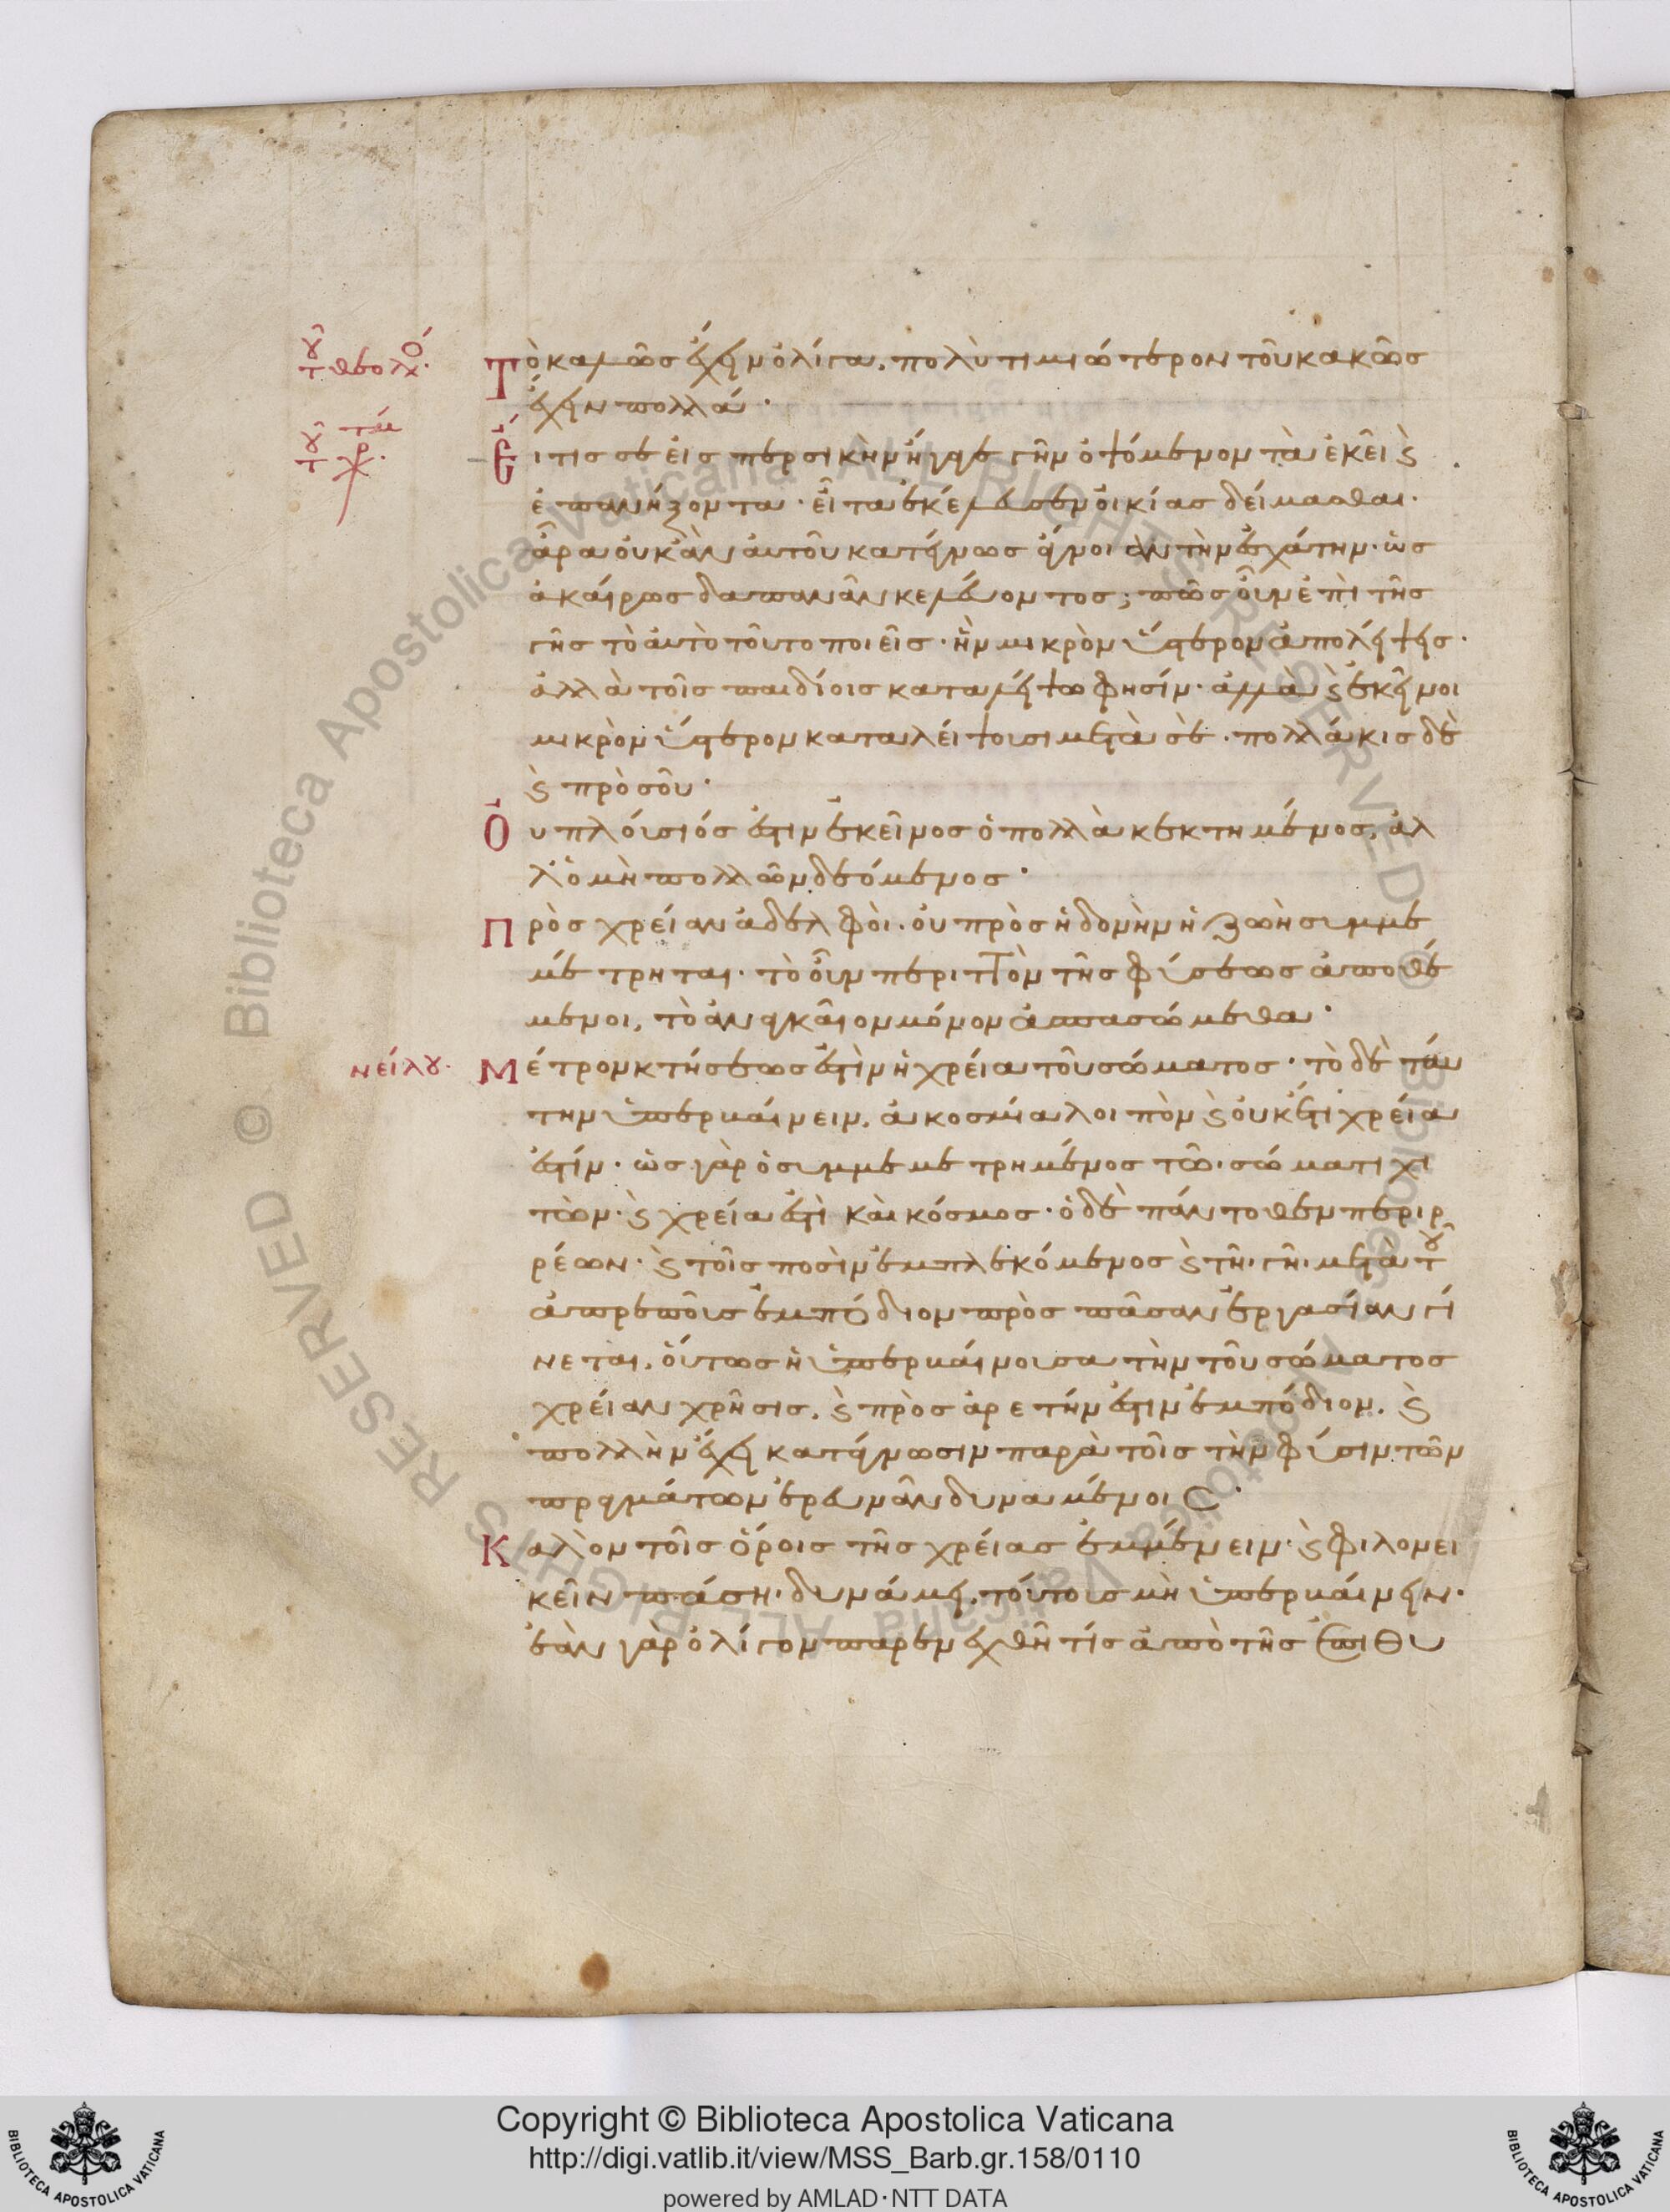 τοῦ θεολό(γου)
Τὸ καλῶς ἔχειν ὀλίγα, πολὺ τιμιώτερον τοῦ κακῶς
ἔχειν πολλά·
τοῦ χρ
Εἴ τις σε εἰς περσικὴν ἤγαγε γῆν ὀψόμενον τὰ ἐκεῖ καὶ
ἐπανήξοντα· εἶτα ἐκέλευσεν οἰκίας δείμασθαι·
ἆρα οὐκ ἂν αὐτοῦ κατέγνως ἄνοιαν τὴν ἐσχάτην· ὡς
ἀκαίρως δαπανᾶν κελεύοντος; πῶς οὖν ἐπὶ τῆς
γῆς τὸ αὐτὸ τοῦτο ποιεῖς· ἣν μικρὸν ὕστερον ἀπολείψεις·
ἀλλὰ τοῖς παιδίοις καταλείψω φησίν· ἀλλὰ καὶ ἐκεῖνοι
μικρὸν ὕστερον καταλείψουσι μετὰ σὲ· πολλάκις δὲ
καὶ πρὸ σοῦ·
Οὐ πλούσιός ἐστιν ἐκεῖνος ὁ πολλὰ κεκτημένος, ἀλ
λ' ὁ μὴ πολλῶν δεόμενος·
Πρὸς χρείαν ἀδελφοὶ· οὐ πρὸς ἡδονὴν ἡ ζωὴ συμμε
μέτρηται· τὸ οὖν περιττὸν τῆς φύσεως ἀποθέ
μενοι, τὸ ἀναγκαῖον μόνον ἀσπασώμεθα·
νείλου·
Μέτρον κτήσεως ἐστὶν ἡ χρεία τοῦ σώματος· τὸ δὲ ταύ
την ὑπερβαίνειν, ἀκοσμία λοιπὸν καὶ οὐκέτι χρεία
ἐστίν· ὡς γὰρ ὁ συμμεμετρημένος τῶ σώματι χι
τὼν· καὶ χρεία ἐστὶ καὶ κόσμος· ὁ δὲ πάντοθεν περιρ
ρέων· καὶ τοῖς ποσὶν ἐμπλεκόμενος καὶ τῆ γῆ· μετὰ τοῦ
ἀπρεποῦς ἐμπόδιον πρὸς πᾶσαν ἐργασίαν γί
νεται, οὕτως ἡ ὑπερβαίνουσα τὴν τοῦ σώματος
χρείαν χρῆσις, καὶ πρὸς ἀρετήν ἐστιν ἐμπόδιον, καὶ
πολλὴν ἔχει κατάγνωσιν παρὰ τοῖς τὴν φύσιν τῶν
πραγμάτων ἐρευνᾶν δυναμένοις·
Καλὸν τοῖς ὅροις τῆς χρείας ἐμμένειν· καὶ φιλονει
κεῖν πάση δυνάμει, τούτους μὴ ὑπερβαίνειν·
ἐὰν γὰρ ὀλίγον παρενεχθῆ τίς ἀπὸ τῆς ἐπιθυ
Copyright © Biblioteca Apostolica Vaticana
http://digi.vatlib.it/view/MSS_Barb.gr.158/0110
powered by AMLAD·NTT DATA